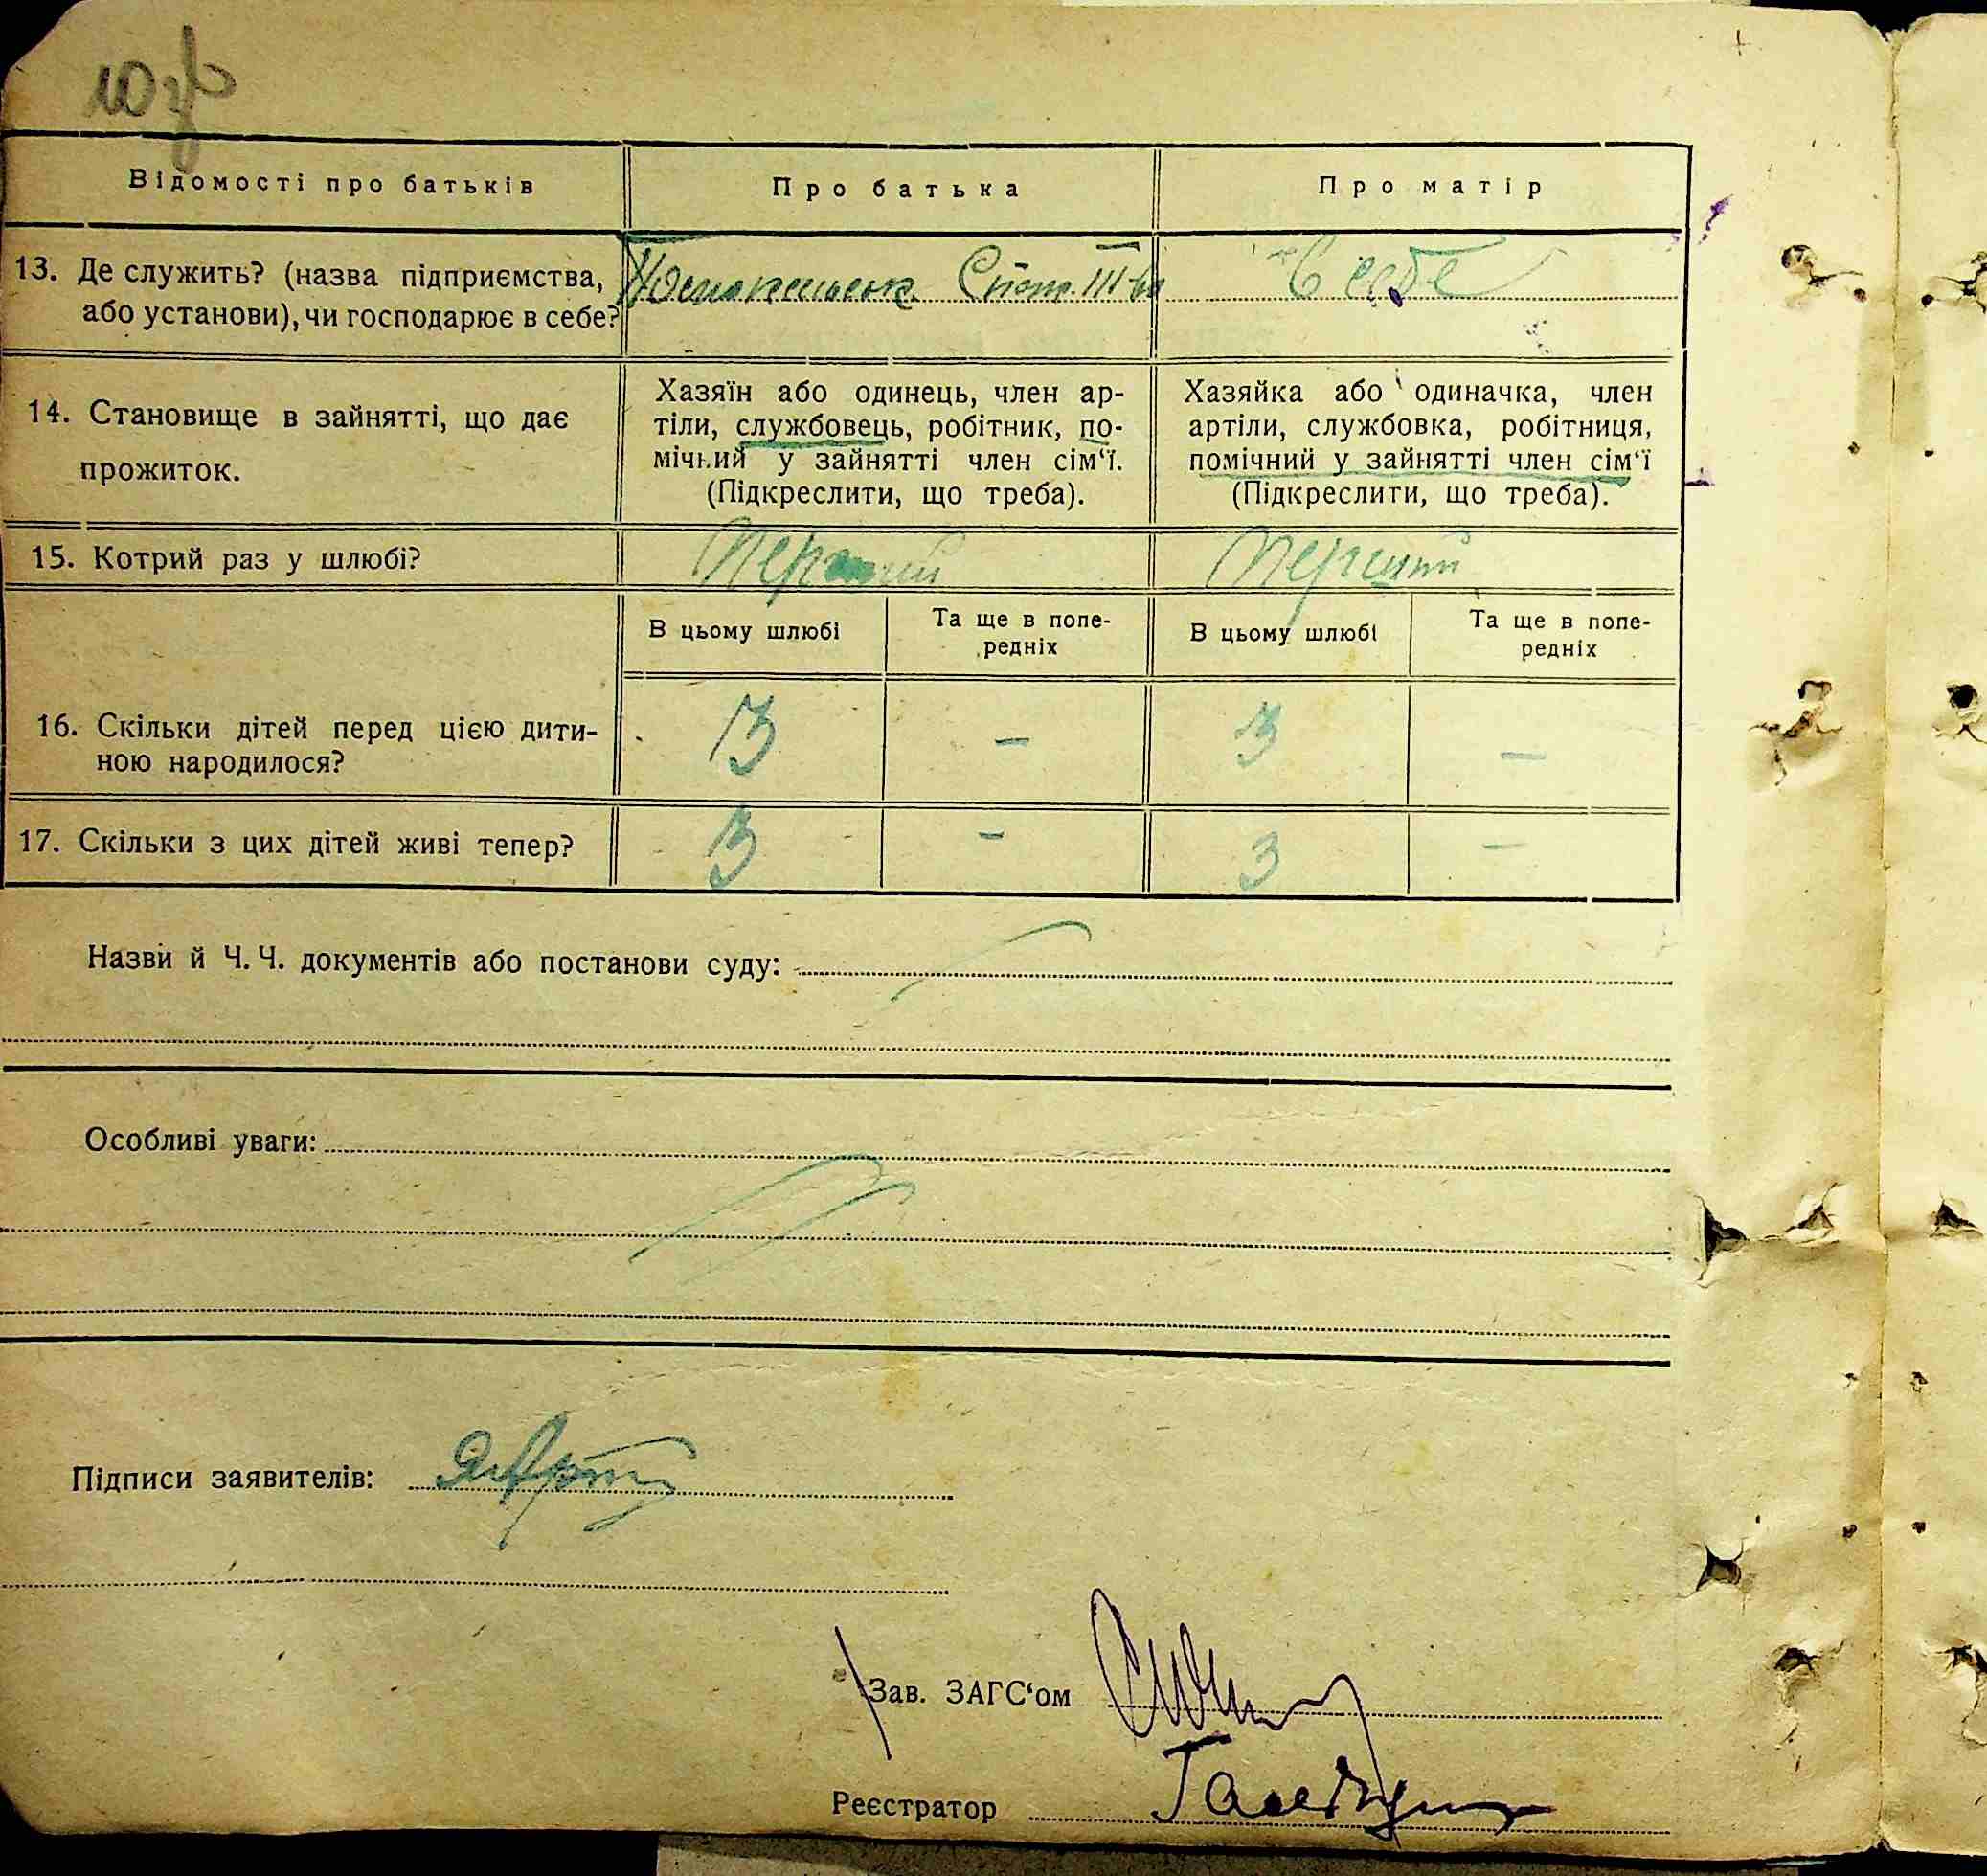 10 зв
Відомості про батьків
Про батька
Про матір
13. Де служить? (назва підприємства,
або установи), чи господарює в себе?
Спож. Т-ва
в себе
14. Становище в зайнятті, що дає
прожиток.
Хазяїн або одинець, член ар-
тіли, службовець, робітник, по-
мічний у зайнятті член сім‘ї.
(Підкреслити, що треба).
Хазяйка або одиначка, член
артіли, службовка, робітниця,
помічний у зайнятті член сім‘ї
(Підкреслити, що треба).
15. Котрий раз у шлюбі?
Перший
Перший
В цьому шлюбі
Та ще в попе-
редніх
В цьому шлюбі
Та ще в попе-
редніх
16. Скільки дітей перед цією дити-
ною народилося?
3 – 3 –
17. Скільки з цих дітей живі тепер?
3 – 3 –
Назви й Ч. Ч. документів або постанови суду:
Особливі уваги:
Підписи заявителів:
Зав. ЗАГС‘ом
Реєстратор